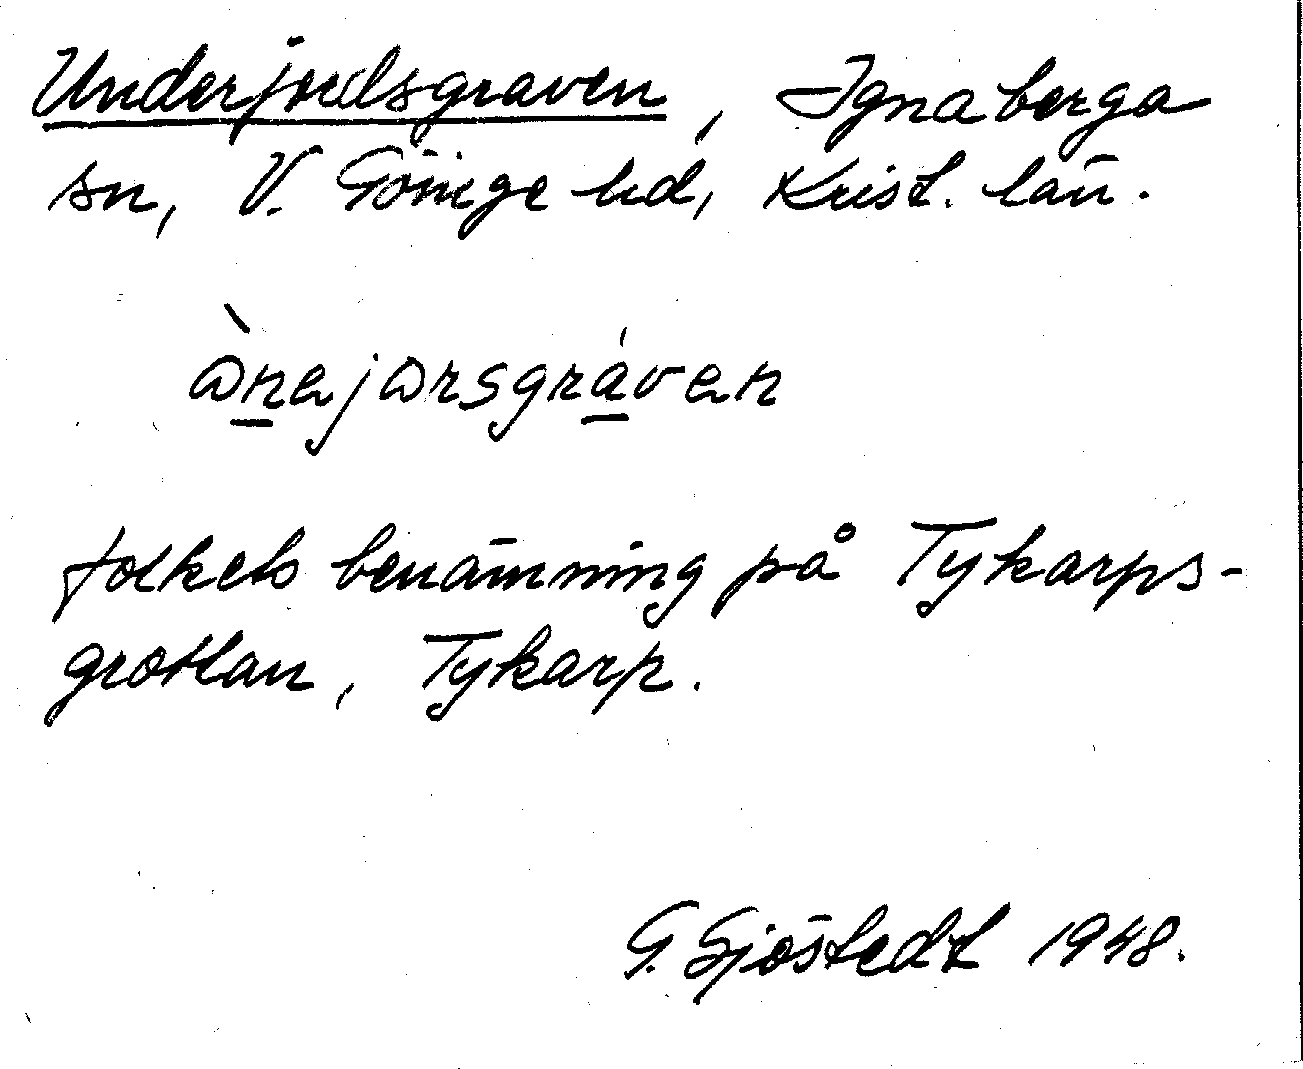 Underjordsgraven, Ignaberga
sn, V. Göinge hd, Krist. län.
ὼnejωrsgráven
folkets benämning på Tykarps-
grottan, Tykarp.
G. Sjöstedt 1948.